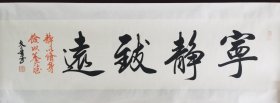 寧静致遠
静以修身
儉以養德